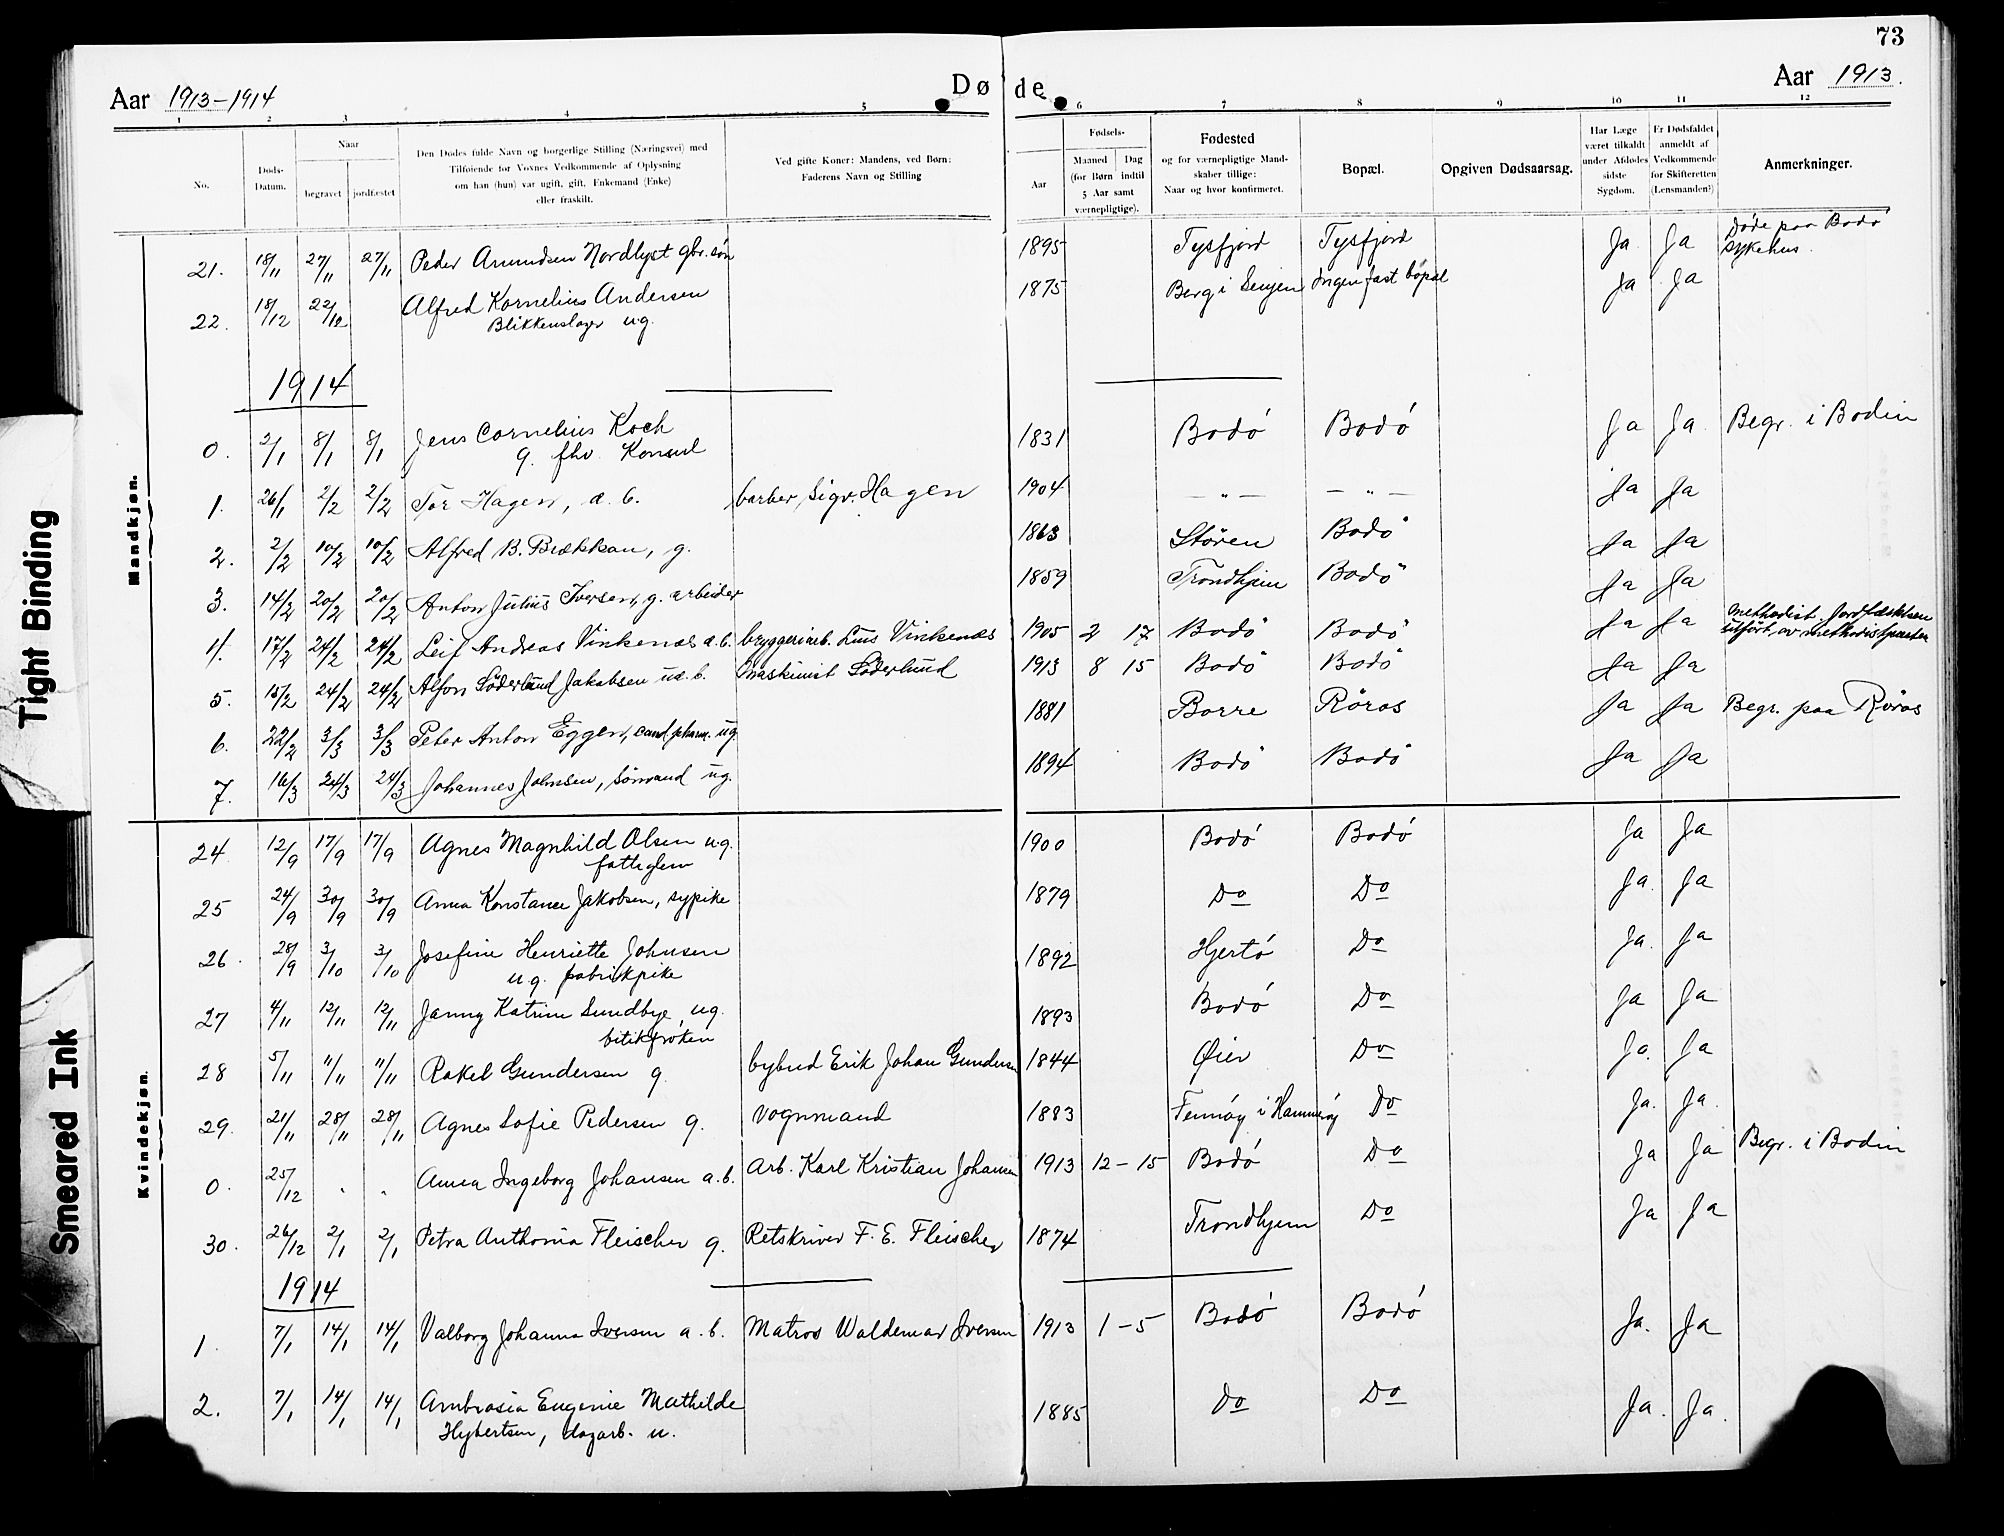 73
Aar 1913-1914 Døde. Aar 1913.
1 2 3 4 5 6 7 8 9 10 11 12
No.
Døds-
Datum.
Naar
begravet jordfæstet
Den Dødes fulde Navn og borgerlige Stilling (Næringsvei) med
Tilføiende for Voxnes Vedkommende af Oplysning
om han (hun) var ugift, gift, Enkemand (Enke)
eller fraskilt.
Ved gifte Koner: Mandens, ved Børn:
Faderens Navn og Stilling
Fødsels-
Aar
Maaned Dag
(for Børn indtil
5 Aar samt
værnepligtige).
Fødested
og for værnepligtige Mand-
skaber tillige:
Naar og hvor konfirmeret.
Bopæl.
Opgiven Dødsaarsag.
Har Læge
været tilkaldt
under Afdødes
sidste
Sygdom.
Er Dødsfaldet
anmeldt af
Vedkommende
for Skifteretten
(Lensmanden?)
Anmerkninger.
Mandkjøn.
21. 18/11 27/11 27/11 Peder Amundsen Nordlyst gbr.søn 1895 Tysfjord Tysfjord Ja Ja Døde paa Bodø
sykehus.
22. 18/12 22/12 Alfred Kornelius Andersen 1875 Berg i Senjen Ingen fast bopæl Ja Ja
Blikkenslager ug.
1914
0. 2/1 8/1 8/1 Jens Cornelius Koch 1831 Bodó Bodó Ja Ja Begr. i Bodin
g. fhv. Konsul
1. 26/1 2/2 2/2 Tor Hagen, æ. b. barber Sigv. Hagen 1904 — „ — — „ — Ja Ja
2. 2/2 10/2 10/2 Alfred B. Brækkan, g. 1863 Støren Bodö Ja Ja
3. 14/2 20/2 20/2 Anton Julius Iversen, g. arbeider 1859 Trondhjem Bodö Ja Ja
4. 17/2 24/2 24/2 Leif Andreas Vinkenæs æ.b. bryggeriarb. Vinkenæs 1905 2 17 Bodö Bodö Ja Ja methodist. Jordfæstelsen
utført av methodistpresten
5. 15/2 24/2 24/2 Alfon Söderlund Jakobsen uæ. b. Maskinist Söderlund 1913 8 15 Bodö Bodö Ja Ja
6. 22/2 3/3 3/3 Peter Anton Eggen, cand. pharm. ug. 1881 Borre Röros Ja Ja Begr. paa Röros
7. 16/3 24/3 24/3 Johannes Johnsen, Sömand ug. 1894 Bodö Bodö Ja Ja
Kvindekjøn.
24 12/9 17/9 17/9 Agnes Magnhild Olsen ug. 1900 Bodó Bodó Ja Ja
fattiglem
25 24/9 30/9 30/9 Anna Konstance Jakobsen, sypike 1879 Do Do Ja. Ja
26. 28/9 3/10 3/10 Josefine Henriette Johnsen 1892 Hjertó Do Ja. Ja
ug. fabrikpike
27 4/11 12/11 12/11 Janny Katrine Sundbye, ug. 1893 Bodó Do Ja Ja
butikfrøken
28 5/11 11/11 11/11 Rakel Gundersen g. bybud Erik Johan Gundersen 1844 Øier Do Ja. Ja
29. 21/11 28/11 28/11 Agnes Sofie Pedersen g. Vognmand 1883 i Hammerøy Do Ja. Ja.
0. 25/12 „ „ Anna Ingeborg Johansen a.b. Arb. Karl Kristian Johansen 1913 12-15 Bodó Do Ja Ja Begr. i Bodin
30. 26/12 2/1 2/1 Petra Anthonia Fleischer g. Retskriver F. E. Fleischer 1874 Trondhjem Do Ja Ja
1914
1. 7/1 14/1 14/1 Valborg Johanna Iversen a.b. Matros Waldemar Iversen 1913 1-5 Bodó Bodó Ja. Ja
2. 7/1 14/1 14/1 Ambrosia Eugenie Mathilde 1885 Do Do Ja. Ja.
Hybertsen, dagarb. u.
Tight Binding
Smeared Ink